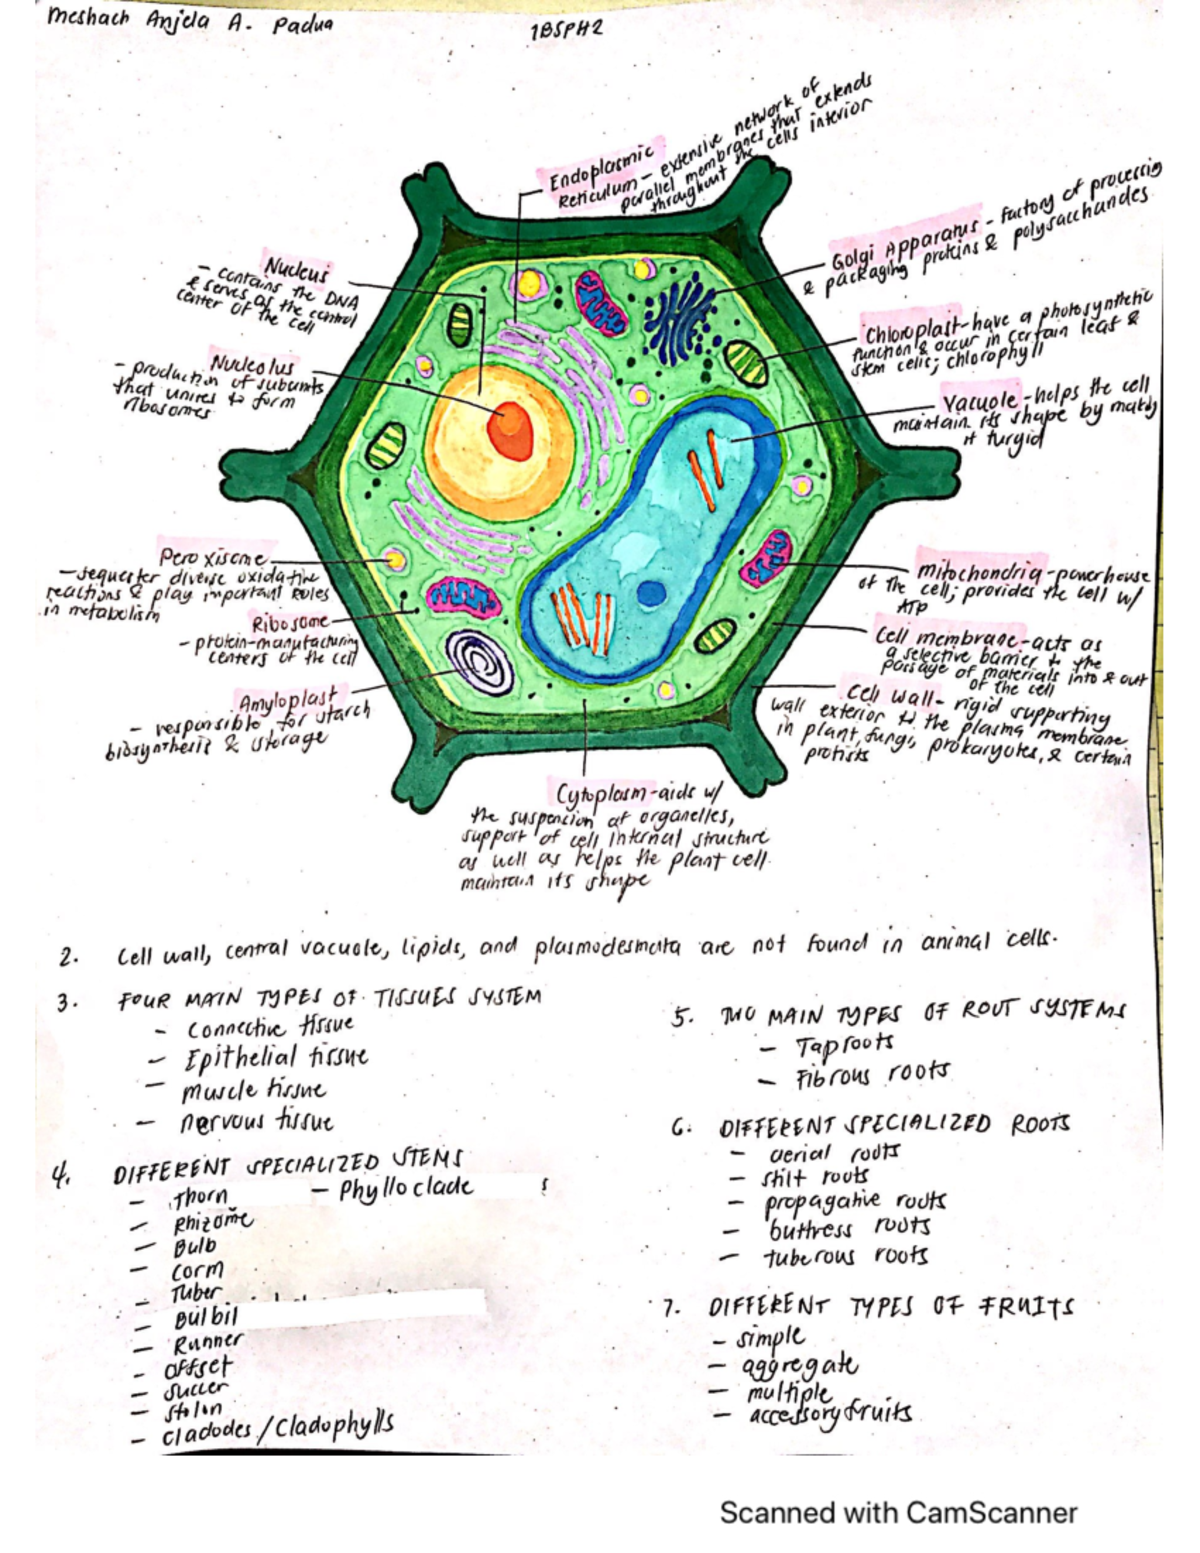 Meshach Anjela A. Padua
1BSPH2
Endoplasmic
Reticulum - extensive network of
parallel membranes that extends
throughout the cells interior
Golgi Apparatus - factory of processing
& packaging proteins & polysacchandes
Chloroplast - have a photosynthetic
function & occur in certain leaf &
stem cells; chlorophyll
Vacuole - helps the cell
maintain its shape by making
it turgid
mitochondria - powerhouse
of the cell; provides the cell w/
ATP
Cell membrane - acts as
a selective barrier to the
passage of materials into & out
of the cell
Cell wall - rigid supporting
wall exterior to the plasma membrane
in plant, fungi, prokaryotes, & certain
protists
Nucleus
- contains the DNA
& serves as the control
center of the cell
Nucleolus
- production of subunits
that unites to form
ribosomes
Peroxisome
- sequester diverse oxidative
reactions & play important roles
in metabolism
Ribosome
- protein-manufacturing
centers of the cell
Amyloplast
- responsible for starch
biosynthesis & storage
Cytoplasm - aids w/
the suspencion of organelles,
support of cell internal structure
as well as helps the plant cell
maintain its shape
2. Cell wall, central vacuole, lipids, and plasmodesmata are not found in animal cells.
3. FOUR MAIN TYPES OF TISSUES SYSTEM
- Connective tissue
- Epithelial tissue
- muscle tissue
- nervous tissue
4. DIFFERENT SPECIALIZED STEMS
- Thorn - Phylloclade s
- Rhizome
- Bulb
- Corm
- Tuber
- Bulbil
- Runner
- offset
- succer
- stolon
- cladodes / Cladophylls
5. TWO MAIN TYPES OF ROUT SYSTEMS
- Taproots
- Fibrous roots
6. DIFFERENT SPECIALIZED ROOTS
- aerial roots
- stilt roots
- propagative roots
- buttress roots
- tuberous roots
7. DIFFERENT TYPES OF FRUITS
- simple
- aggregate
- multiple
- accessory fruits
Scanned with CamScanner